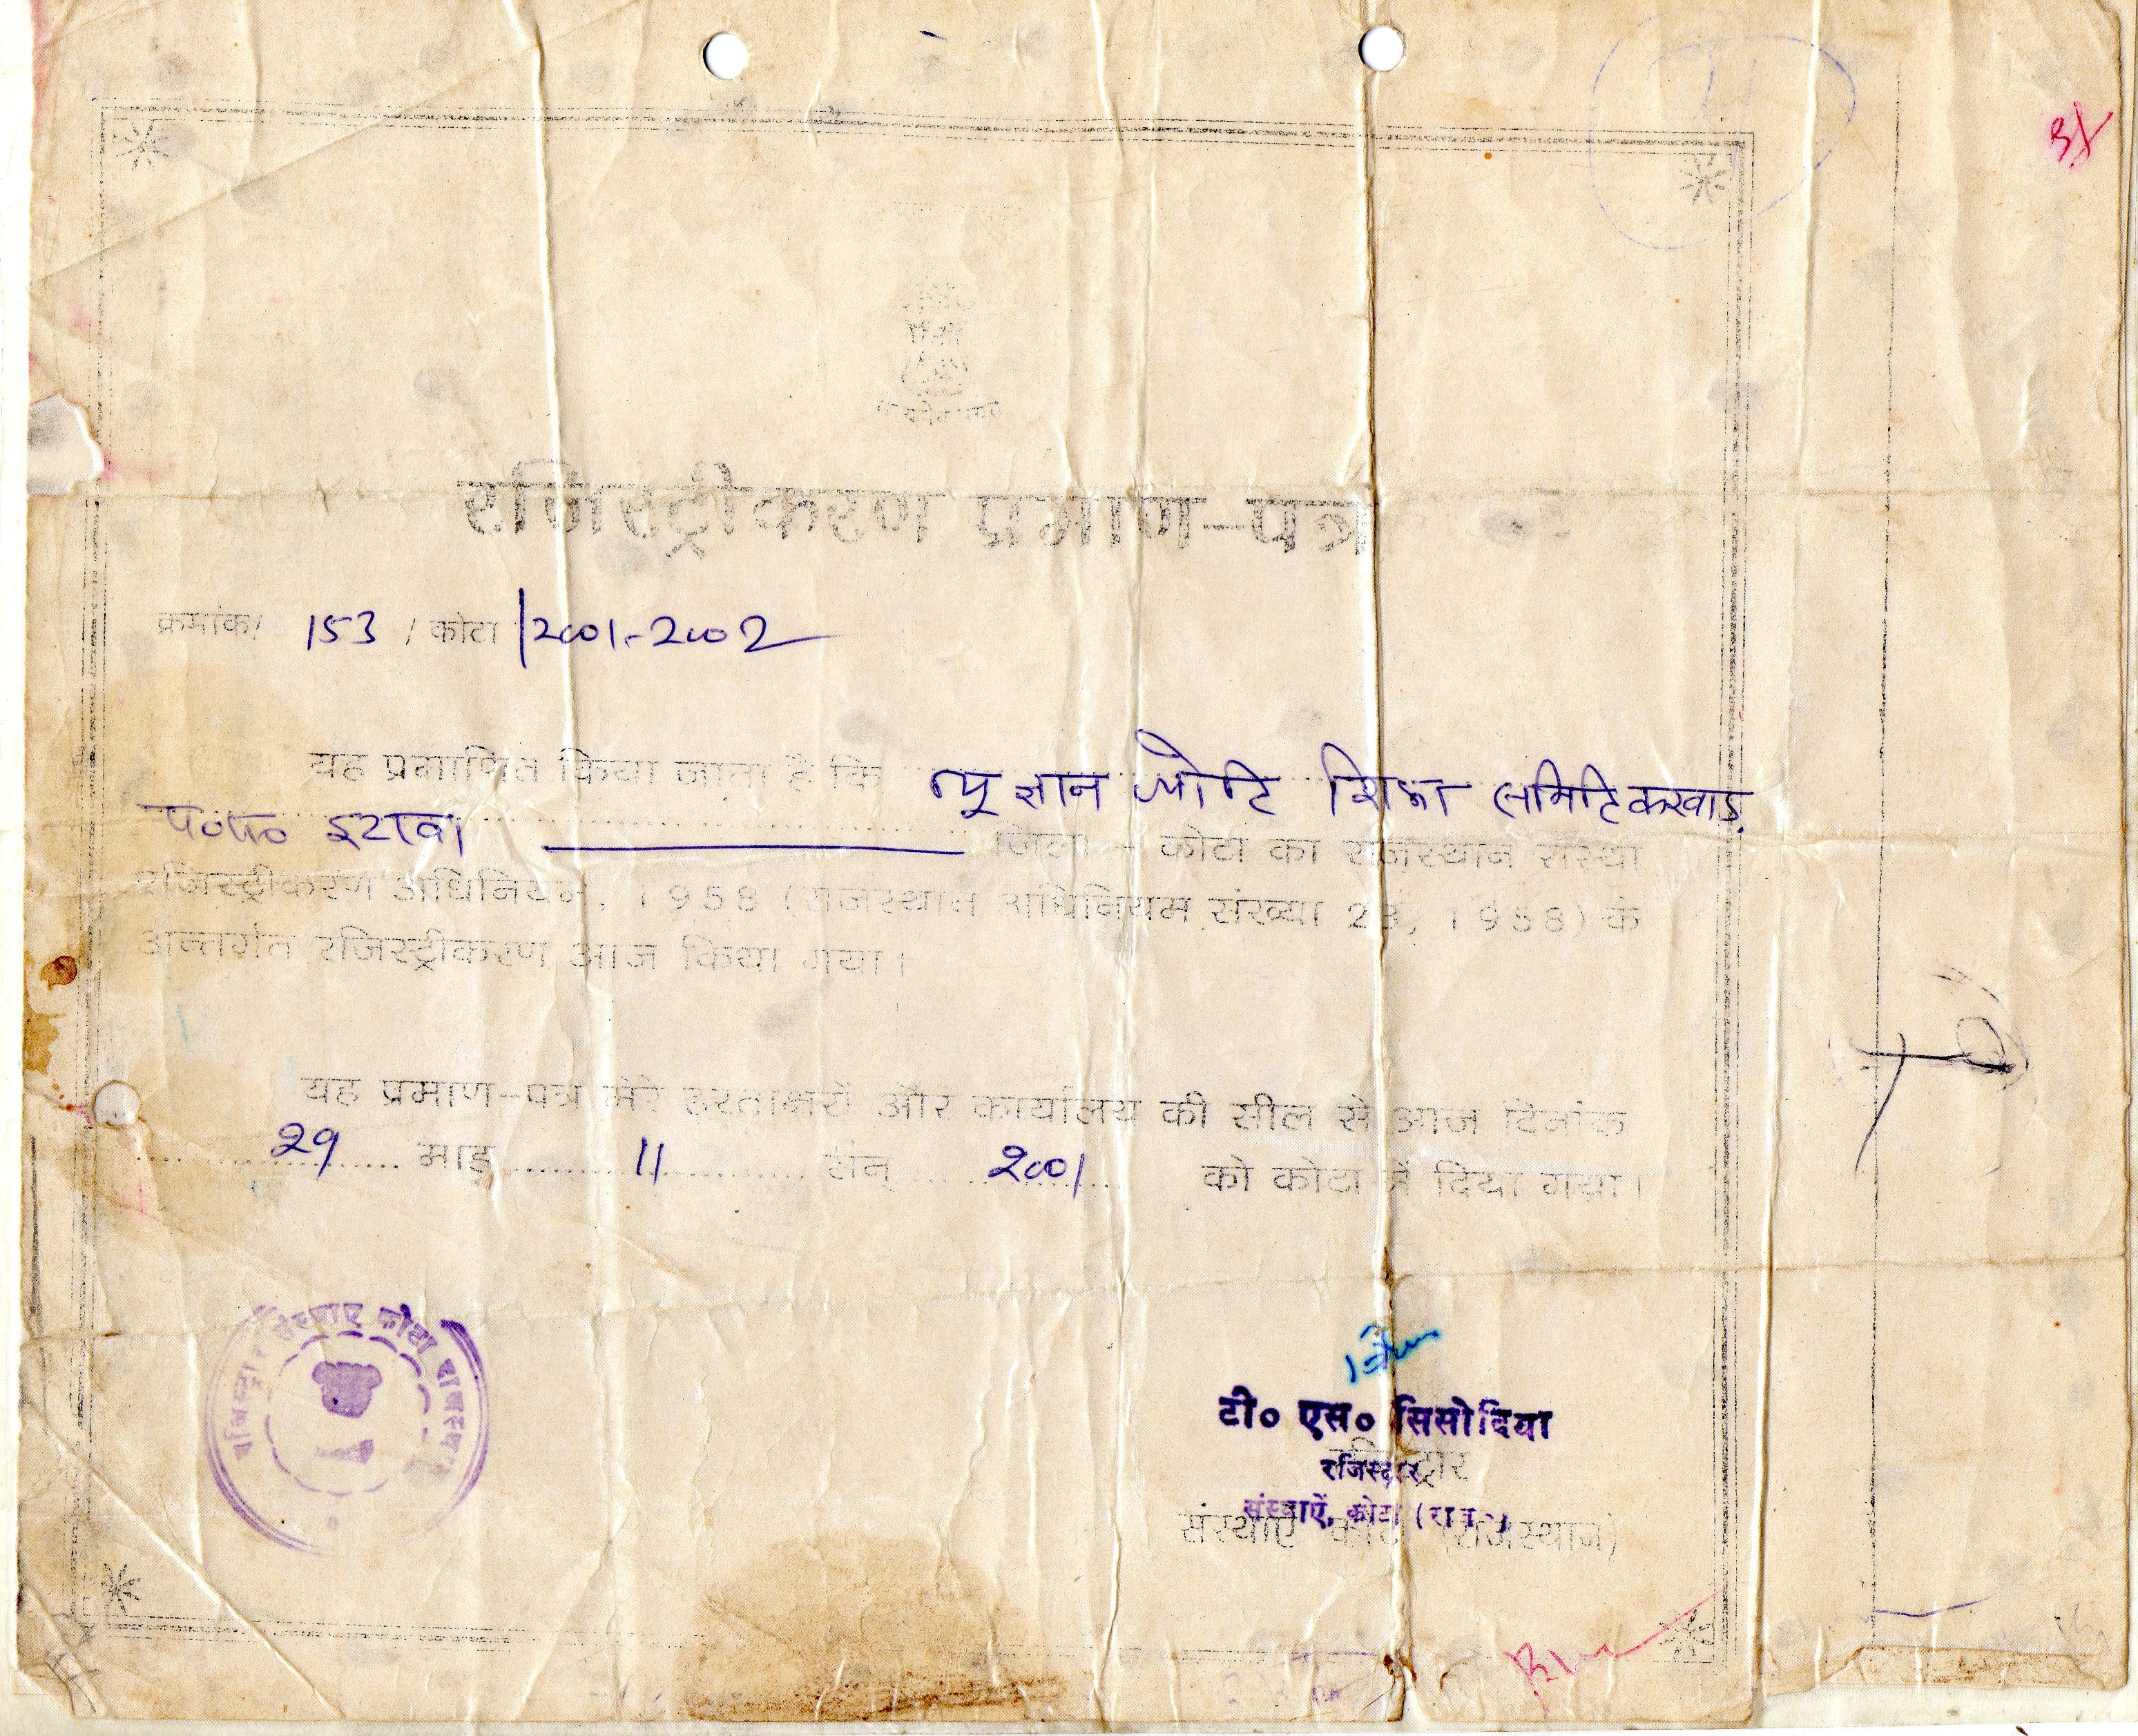 रजिस्ट्रीकरण प्रमाण-पत्र
क्रमांक/ 153 / कोटा /2001-2002
यह प्रमाणित किया जाता है कि न्यू ज्ञान ज्योति शिक्षा समिति करवाड़
पं०स० इटावा जिला - कोटा का राजस्थान संस्था
रजिस्ट्रीकरण अधिनियम, 1958 (राजस्थान अधिनियम संख्या 28, 1958) के
अन्तर्गत रजिस्ट्रीकरण आज किया गया।
यह प्रमाण-पत्र मेरे हस्ताक्षरों और कार्यालय की सील से आज दिनांक
29 माह 11 सन् 2001 को कोटा में दिया गया।
रजिस्ट्रार संस्थाएं कोटा राजस्थान
टी० एस० सिसोदिया
रजिस्ट्रार
रजिस्ट्रार
संस्थाऐं, कोटा (राज०)
संस्थाएं कोटा (राजस्थान)